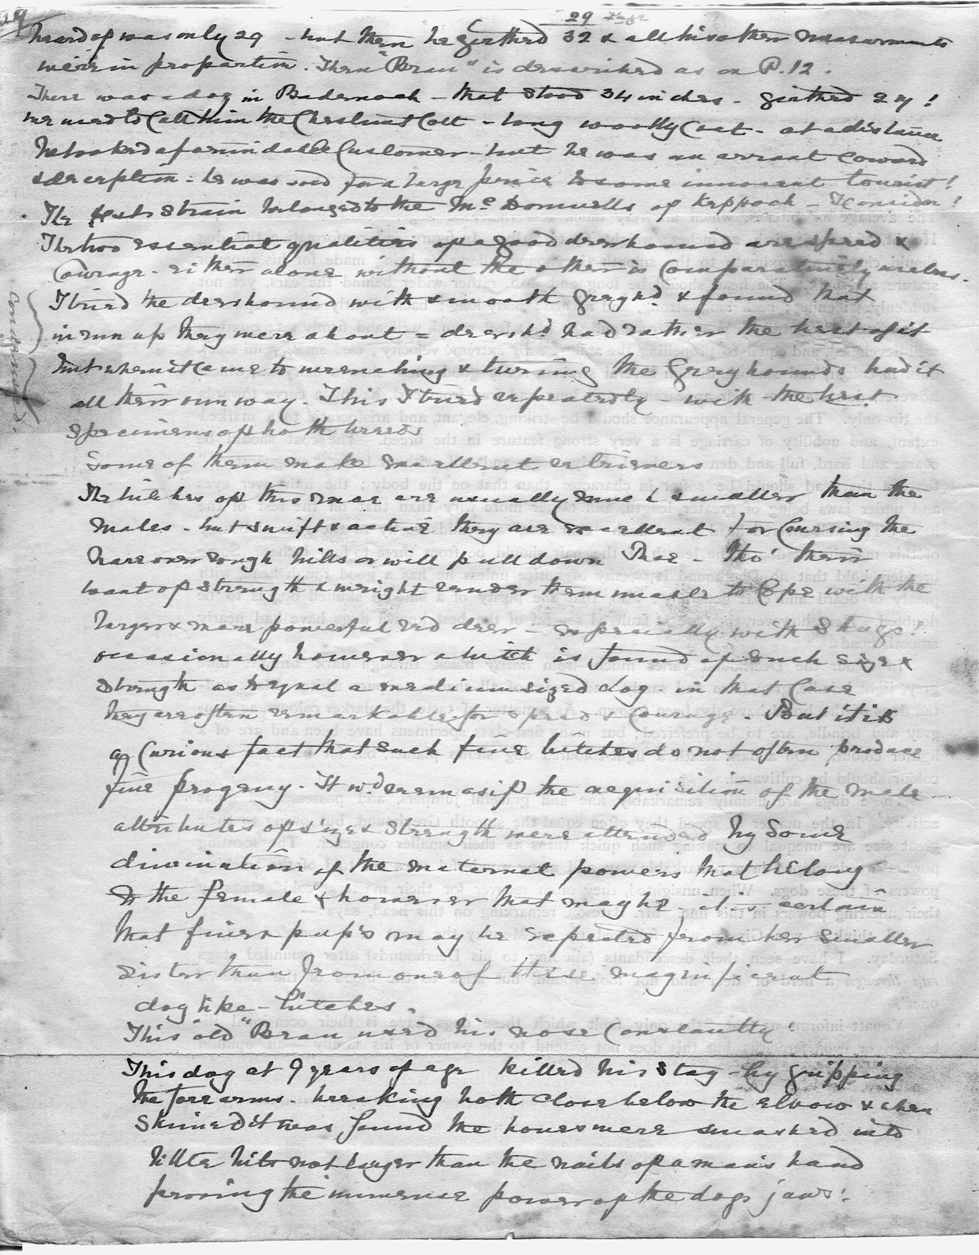 29
heard of was only 29 - but then he girthed 32 & all his other measurements
were in proportion. Then "Bran" is described as on P.12.
There was a dog in Badenoch - that stood 34 inches - girthed 27!
we used to Call him the Chestnut Colt - long woolly Coat - at a distance
he looked a formidable Customer - but he was an arrant Coward
& deception - he was sold for a large price to some innocent tourist!
The best strain belonged to the McDonnells of Keppoch - I consider!
The two essential qualities of a good deerhound are speed &
Courage - either alone without the other is Comparatively useless.
I tried the deerhound with smooth greyhd & found that
in run up they were about = deerhd had rather the best of it
but when it Came to wrenching & turning the Greyhounds had it
all their own way. This I tried repeatedly - with the best
specimens of both breeds
Some of them make excellent retrievers
The bitches of this race are usually much smaller than the
males - but swift & active they are excellent for Coursing the
hare over rough hills or will pull down Roe - tho' their
want of strength & weight render them unable to Cope with the
larger & more powerful red deer - especially with Stags!
occasionally however a bitch is found of such size &
strength as to equal a medium sized dog in that Case
they are often remarkable for speed & Courage. But it is
a Curious fact that such fine bitches do not often produce
fine progeny - It wd seem as if the acquisition of the male
attributes of size & strength were attended by some
diminution of the maternal powers that belong
to the female & however that may be - it is certain
that finer pups may be expected from her smaller
sister than from one of these magnificent
dog like - bitches.
This old "Bran" used his nose Constantly
This dog at 9 years of age killed his Stag - by gripping
the forearms - breaking both close below the elbow & when
skinned it was found the bones were smashed into
little bits not larger than the nails of a man's hand
proving the immense power of the dogs jaws!